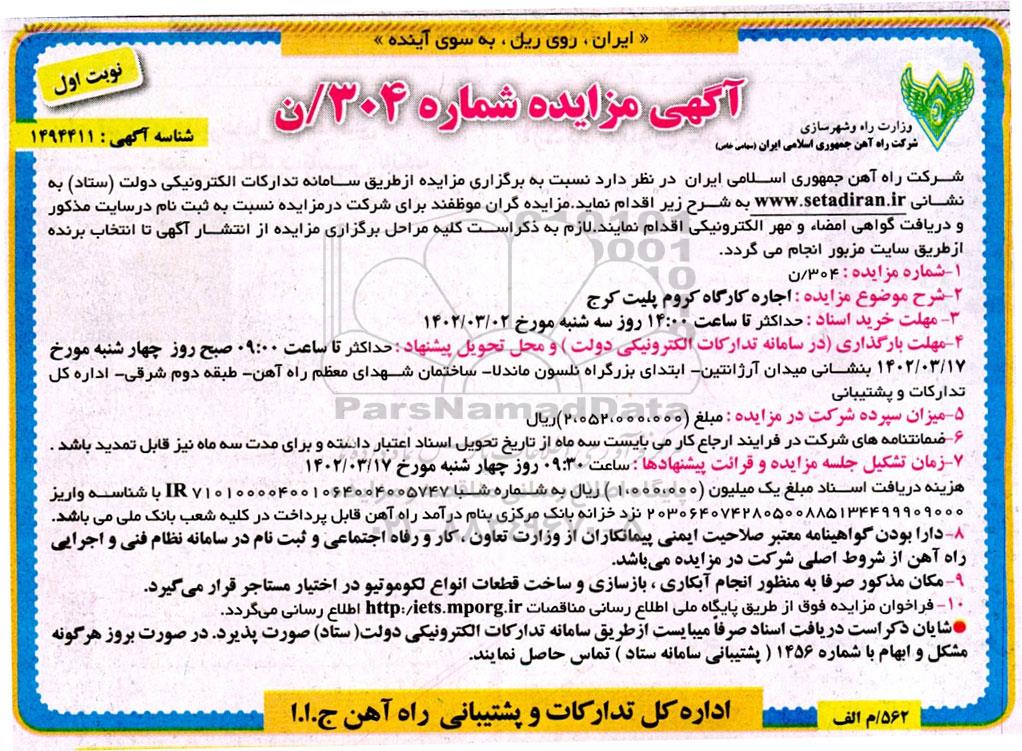 « ایران ، روی ریل ، به سوی آینده »
نوبت اول
آگهی مزایده شماره ۳۰۴/ن
شناسه آگهی : ۱۴۹۴۴۱۱
وزارت راه وشهرسازی
شرکت راه آهن جمهوری اسلامی ایران (سهامی خاص)
شرکت راه آهن جمهوری اسلامی ایران در نظر دارد نسبت به برگزاری مزایده ازطریق سامانه تدارکات الکترونیکی دولت (ستاد) به
نشانی www.setadiran.ir به شرح زیر اقدام نماید.مزایده گران موظفند برای شرکت درمزایده نسبت به ثبت نام درسایت مذکور
و دریافت گواهی امضاء و مهر الکترونیکی اقدام نمایند.لازم به ذکراست کلیه مراحل برگزاری مزایده از انتشار آگهی تا انتخاب برنده
ازطریق سایت مزبور انجام می گردد.
۱-شماره مزایده : ۳۰۴/ن
۲-شرح موضوع مزایده : اجاره کارگاه کروم پلیت کرج
۳- مهلت خرید اسناد : حداکثر تا ساعت ۱۴:۰۰ روز سه شنبه مورخ ۱۴۰۲/۰۳/۰۲
۴-مهلت بارگذاری (در سامانه تدارکات الکترونیکی دولت ) و محل تحویل پیشنهاد : حداکثر تا ساعت ۰۹:۰۰ صبح روز چهار شنبه مورخ
۱۴۰۲/۰۳/۱۷ بنشانی میدان آرژانتین- ابتدای بزرگراه نلسون ماندلا- ساختمان شهدای معظم راه آهن- طبقه دوم شرقی- اداره کل
تدارکات و پشتیبانی
۵-میزان سپرده شرکت در مزایده : مبلغ (۲،۰۵۲،۰۰۰،۰۰۰)ریال
۶-ضمانتنامه های شرکت در فرایند ارجاع کار می بایست سه ماه از تاریخ تحویل اسناد اعتبار داشته و برای مدت سه ماه نیز قابل تمدید باشد .
۷-زمان تشکیل جلسه مزایده و قرائت پیشنهادها : ساعت ۰۹:۳۰ روز چهار شنبه مورخ ۱۴۰۲/۰۳/۱۷
هزینه دریافت اسناد مبلغ یک میلیون (۱،۰۰۰،۰۰۰) ریال به شماره شبا IR ۷۱۰۱۰۰۰۰۴۰۰۱۰۶۴۰۰۴۰۰۵۷۴۷ با شناسه واریز
۲۰۳۰۶۴۰۷۴۲۸۰۵۰۰۸۸۵۱۳۴۴۹۹۹۰۹۰۰۰ نزد خزانه بانک مرکزی بنام درآمد راه آهن قابل پرداخت در کلیه شعب بانک ملی می باشد.
۸-دارا بودن گواهینامه معتبر صلاحیت ایمنی پیمانکاران از وزارت تعاون ، کار و رفاه اجتماعی و ثبت نام در سامانه نظام فنی و اجرایی
راه آهن از شروط اصلی شرکت در مزایده می‌باشد.
۹-مکان مذکور صرفا به منظور انجام آبکاری ، بازسازی و ساخت قطعات انواع لکوموتیو در اختیار مستاجر قرار می‌گیرد.
۱۰- فراخوان مزایده فوق از طریق پایگاه ملی اطلاع رسانی مناقصات http:/iets.mporg.ir اطلاع رسانی می‌گردد.
●شایان ذکراست دریافت اسناد صرفاً میبایست ازطریق سامانه تدارکات الکترونیکی دولت( ستاد) صورت پذیرد. در صورت بروز هرگونه
مشکل و ابهام با شماره ۱۴۵۶ ( پشتیبانی سامانه ستاد ) تماس حاصل نمایند.
اداره کل تدارکات و پشتیبانی راه آهن ج.ا.ا
۵۶۲/م الف
ParsNamadData